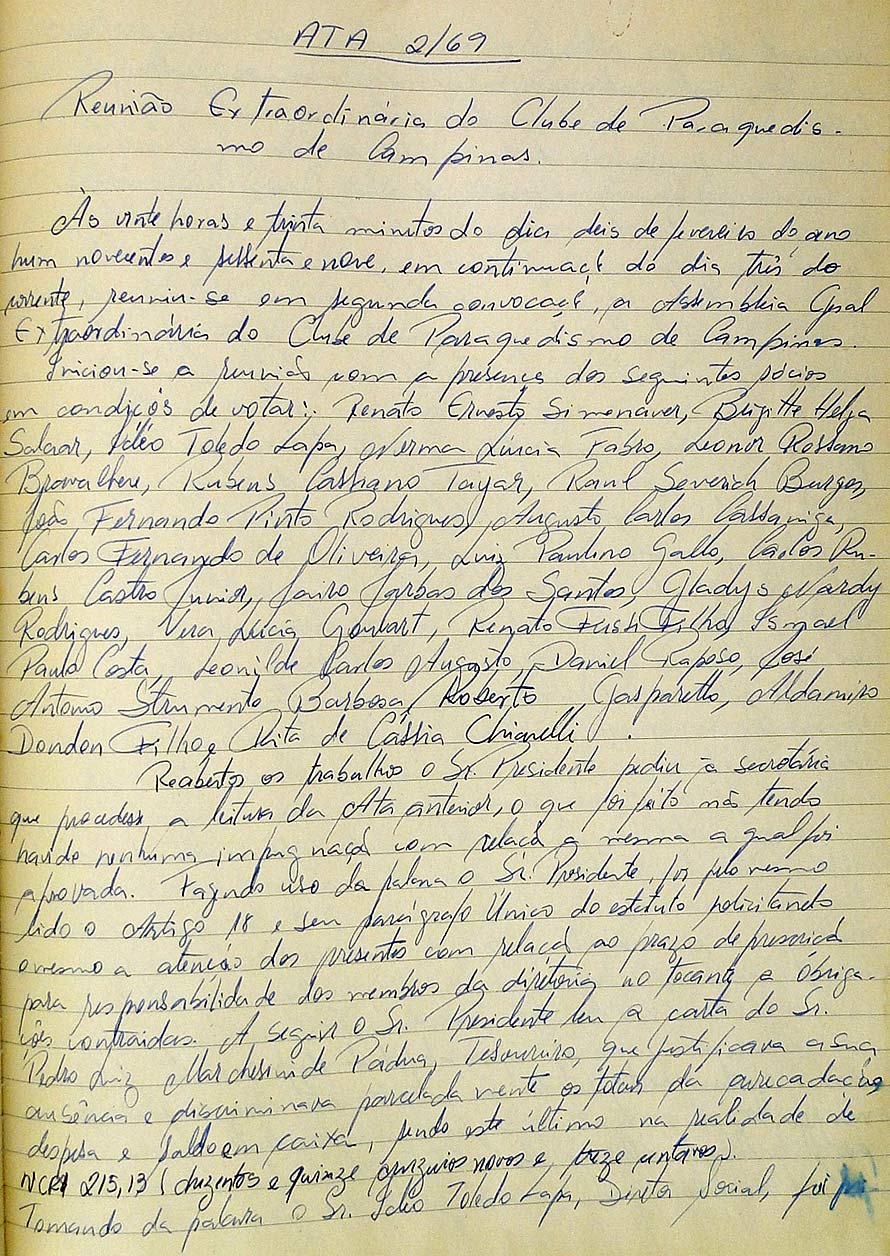 ATA 2/69
Reunião Extraordinária do Clube de Paraquedis-
mo de Campinas.
Às vinte horas e trinta minutos do dia deis de fevereiro do ano
hum novecentos e sessenta e nove, em continuaçã do dia três do
corrente, reuniu-se em segunda convocaçã, a Assembleia Geral
Extraordinária do Clube de Paraquedismo de Campinas.
Iniciou-se a reunião com a presença dos seguintes sócios
em condições de votar: Renato Ernesto Simenauer, Brigitte Helga
Salaar, Idéo Toledo Lapa, Norma Lúcia Fabro, Leonor Rossano
Bravalheri, Rubens Cassiano Tayar, Raul Severich Burgos,
João Fernando Pinto Rodrigues, Augusto Carlos Cassaniga,
Carlos Fernando de Oliveira, Luiz Paulino Gallo, Carlos Ru-
bens Castro Junior, Jairo Jarbas dos Santos, Gladys Nardy
Rodrigues, Vera Lúcia Goulart, Renato Filho, Ismael
Paulo Costa, Leonilde Carlos Augusto, Daniel Raposo, José
Antonio Strumento Barbosa, Roberto Gasparetto, Aldamiro
Dondon Filho e Rita de Cássia Chiarelli.
Reabertos os trabalhos o Sr. Presidente pediu à secretária
que procedesse a leitura da Ata anterior, o que foi feito não tendo
havido nenhuma impugnaçã com relaçã a mesma a qual foi
aprovada. Fazendo uso da palavra o Sr. Presidente, foi pelo mesmo
lido o Artigo 18 e seu parágrafo Único do estatuto solicitando
o mesmo a atenção dos presentes com relaçã ao prazo de prescriçã
para responsabilidade dos membros da diretoria no tocante a obriga-
ções contraidas. A seguir o Sr. Presidente leu a carta do Sr.
Pedro Luiz Marchesini de Pádua, Tesoureiro, que justificava a sua
ausência e discriminava parceladamente os totais da arrecadação,
despesa e saldo em caixa, sendo este último na realidade de
NCR$ 215,13 (duzentos e quinze cruzeiros novos e treze centavos).
Tomando da palavra o Sr. Idéo Toledo Lapa, Diretor Social, foi